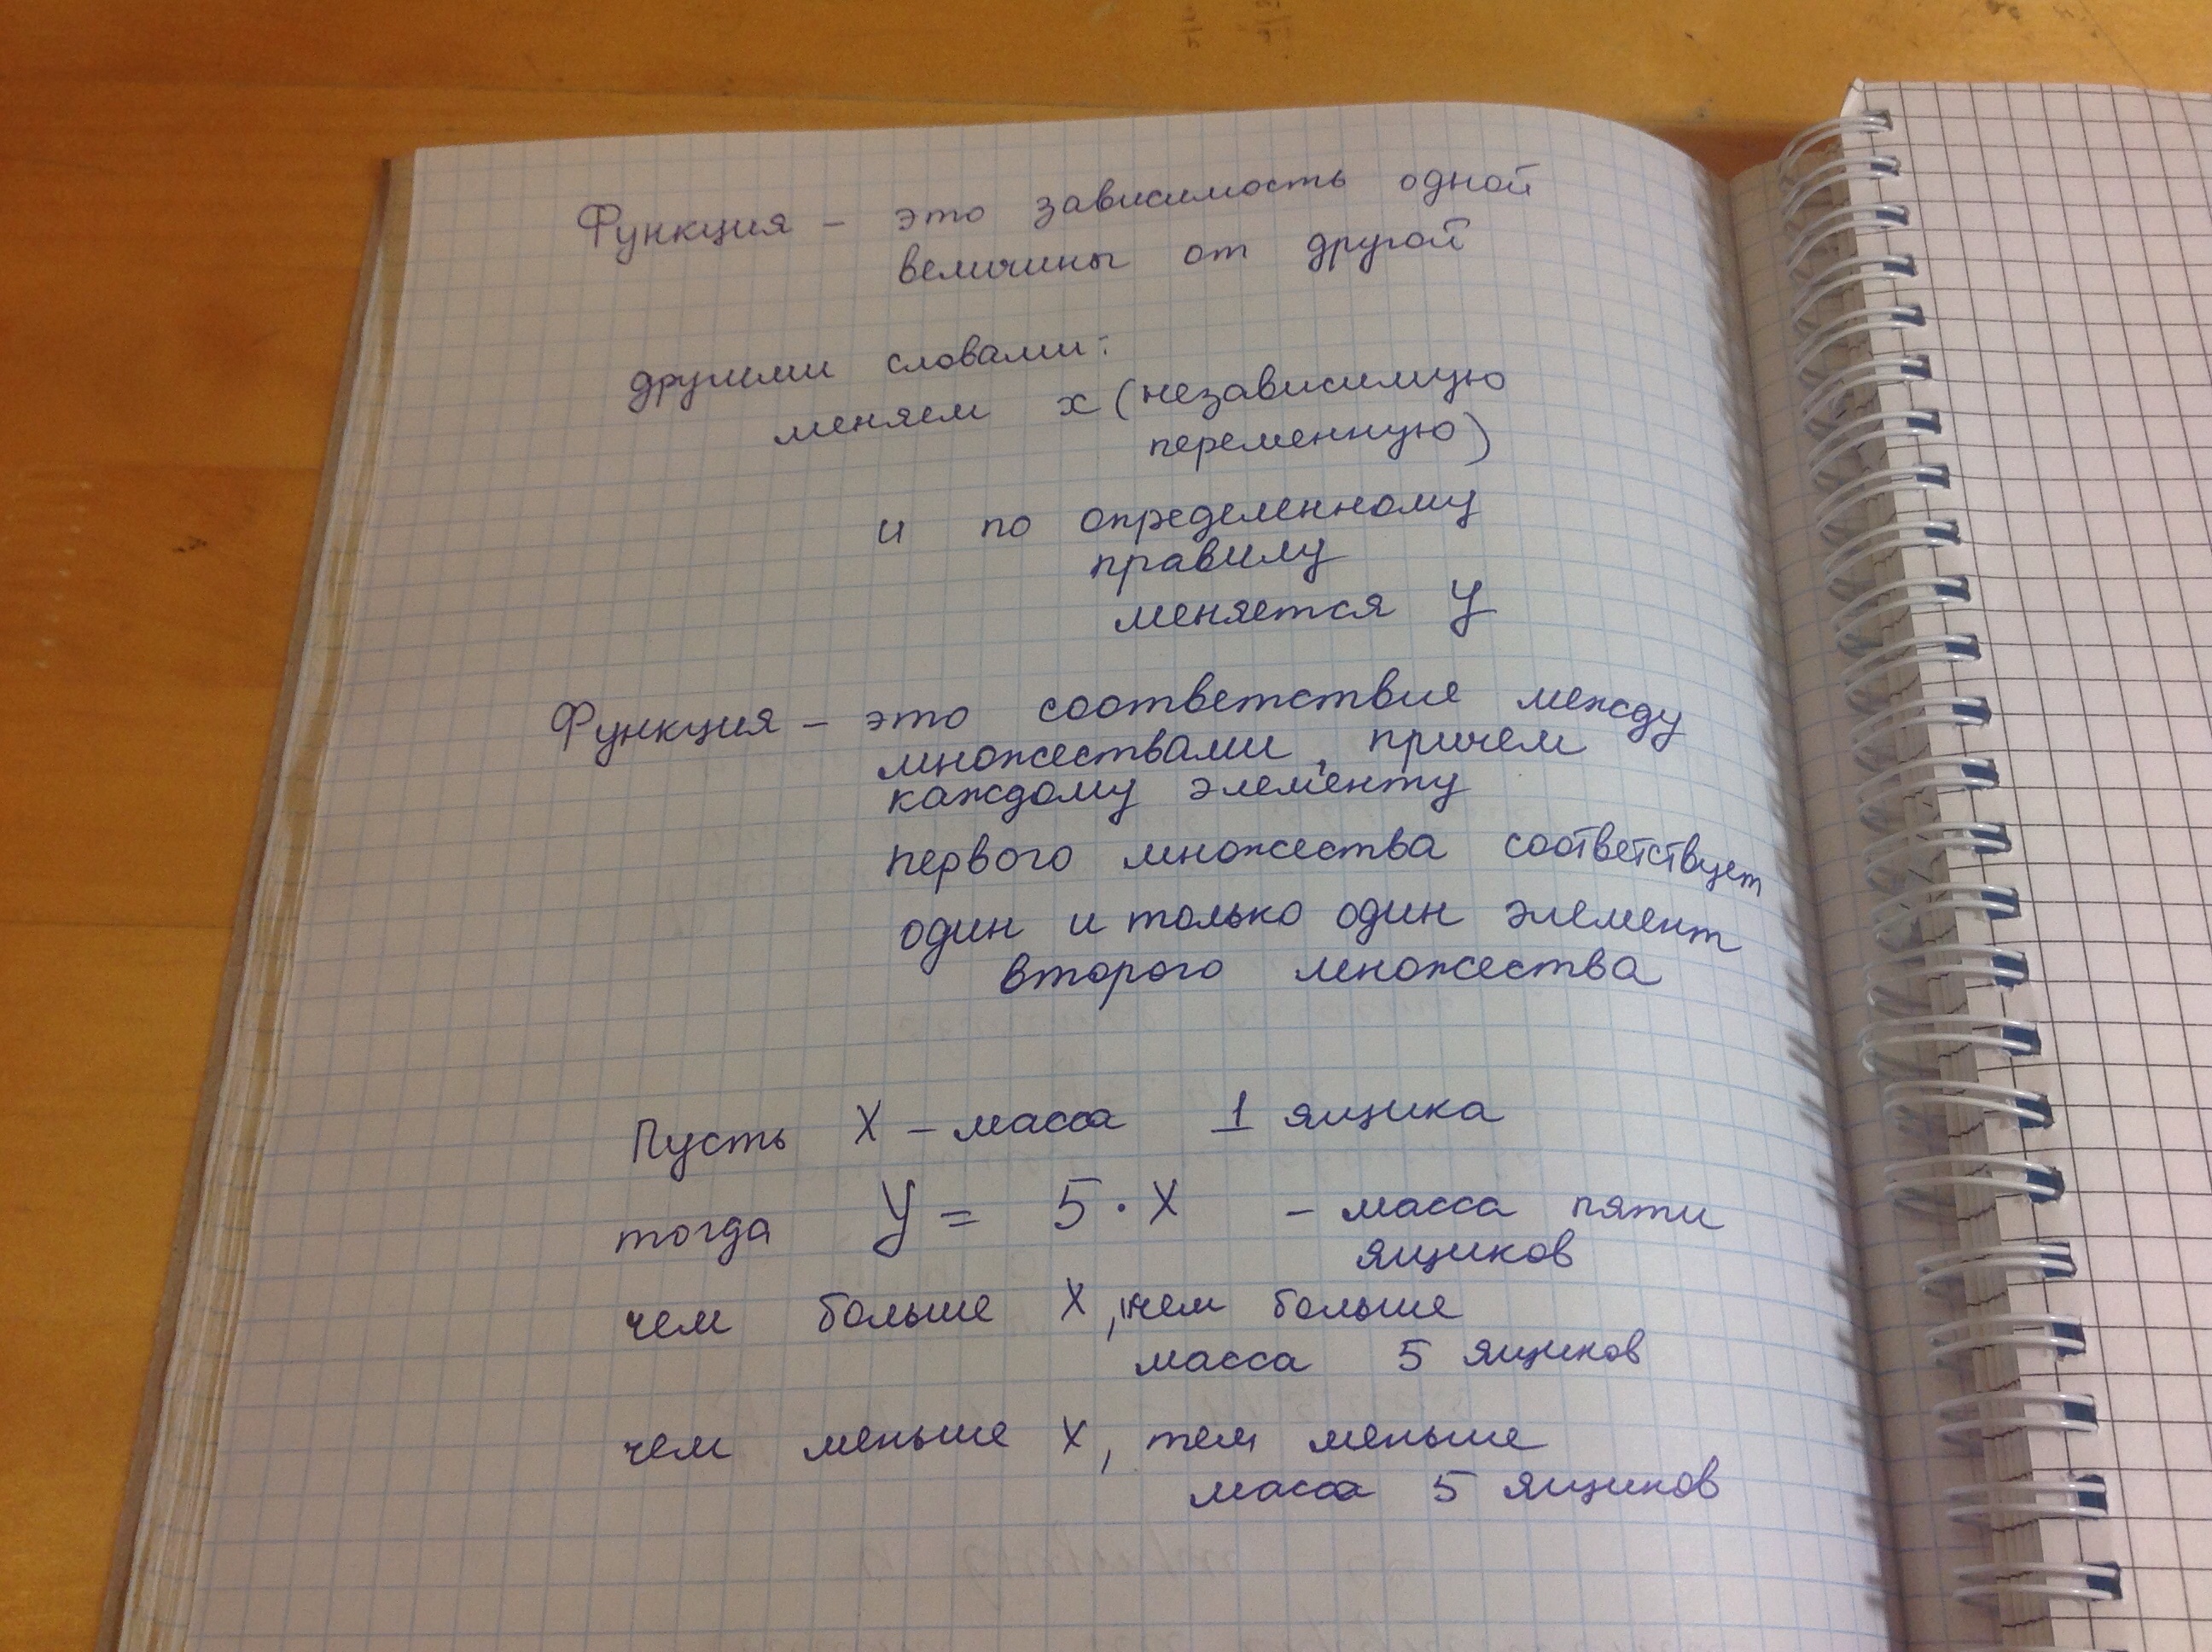 Функция – это зависимость одной
величины от другой
другими словами:
меняем x (независимую
переменную)
и по определенному
правилу
меняется y
Функция – это соответствие между
множествами, причем
каждому элементу
первого множества соответствует
один и только один элемент
второго множества
Пусть X – масса 1 ящика
тогда y = 5 · X – масса пяти
ящиков
чем больше X, чем больше
масса 5 ящиков
чем меньше X, тем меньше
масса 5 ящиков